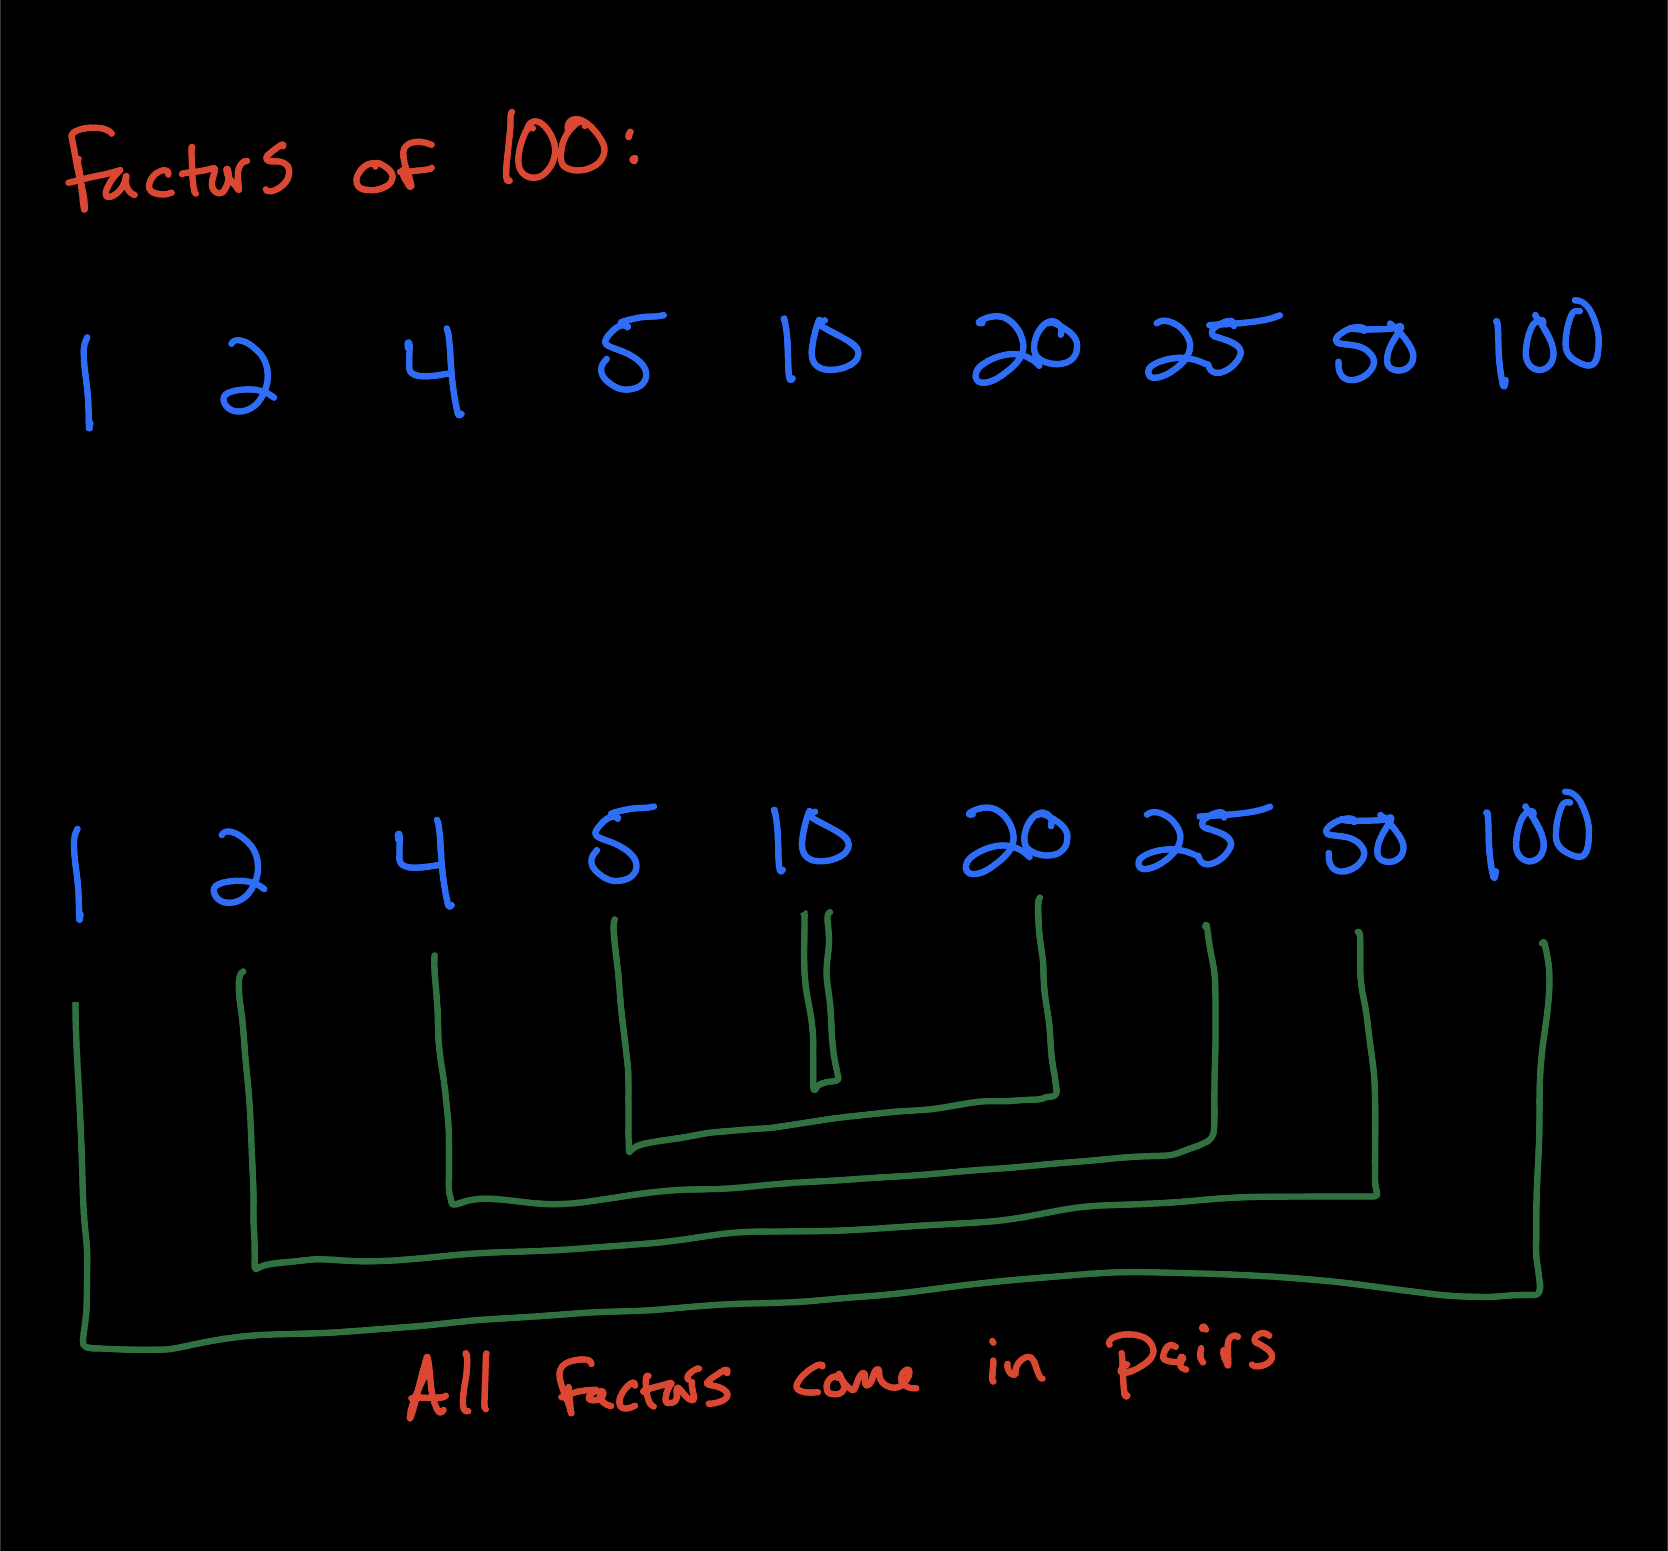 Factors of 100:
1 2 4 5 10 20 25 50 100
1 2 4 5 10 20 25 50 100
All factors come in pairs